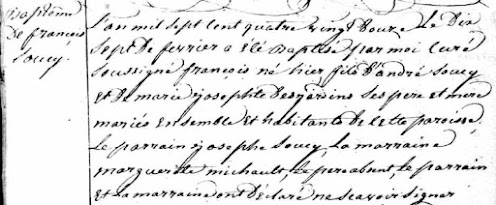 Baptême
De françois
Soucy.
L'an mil sept cent quatre vingt douze Le Dix
Sept De fevrier a eté Baptisé par moi Curé
Soussigné françois né hier fils D'andré Soucy
Et De marie josephte Desjardins Ses pere et mere
mariés Ensemble et habitants De cette paroisse.
Le parrain josephe Soucy La marraine
marguerite michault, Le pere absent Le parrain
Et La marraine ont Déclaré ne Scavoir Signer